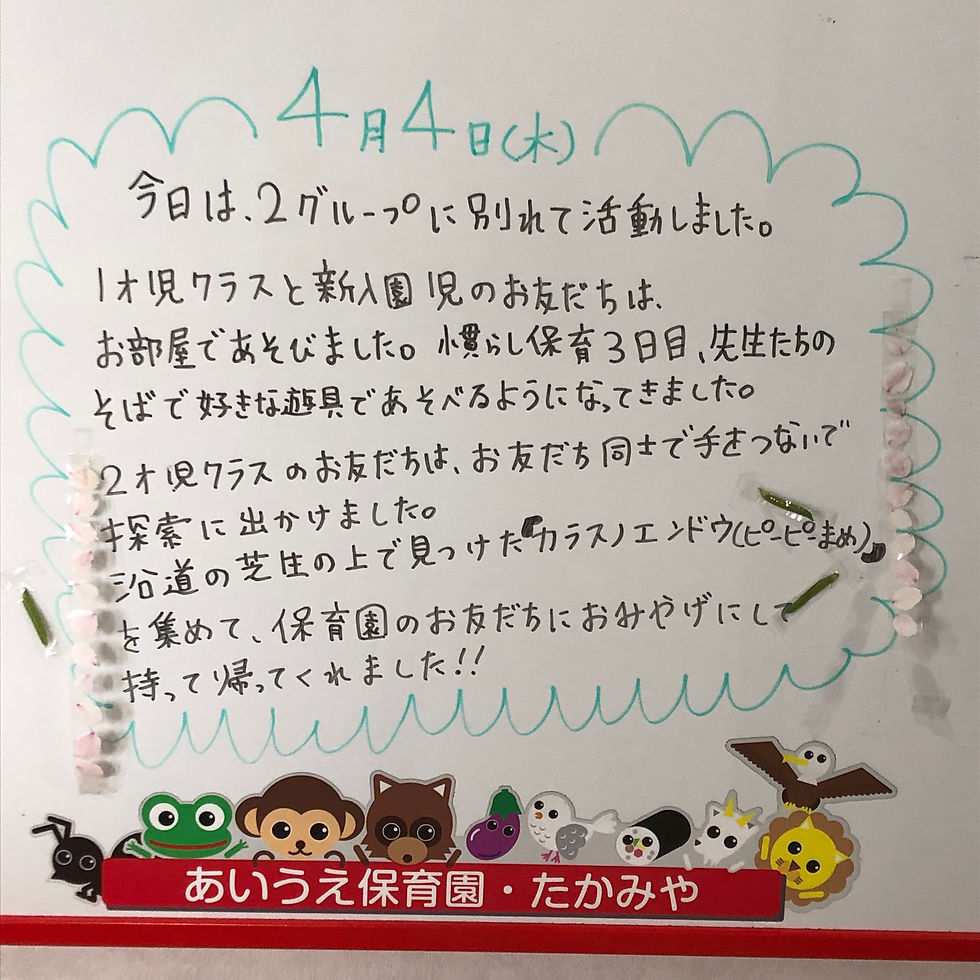 4月4日(木)
今日は、2グループに別れて活動しました。
1才児クラスと新入園児のお友だちは、
お部屋であそびました。慣らし保育3日目、先生たちの
そばで好きな遊具であそべるようになってきました。
2才児クラスのお友だちは、お友だち同士で手をつないで
探索に出かけました。
沿道の芝生の上で見つけた『カラスノエンドウ(ピーピーまめ)』
を集めて、保育園のお友だちにおみやげにして
持って帰ってくれました!!
あいうえ保育園・たかみや